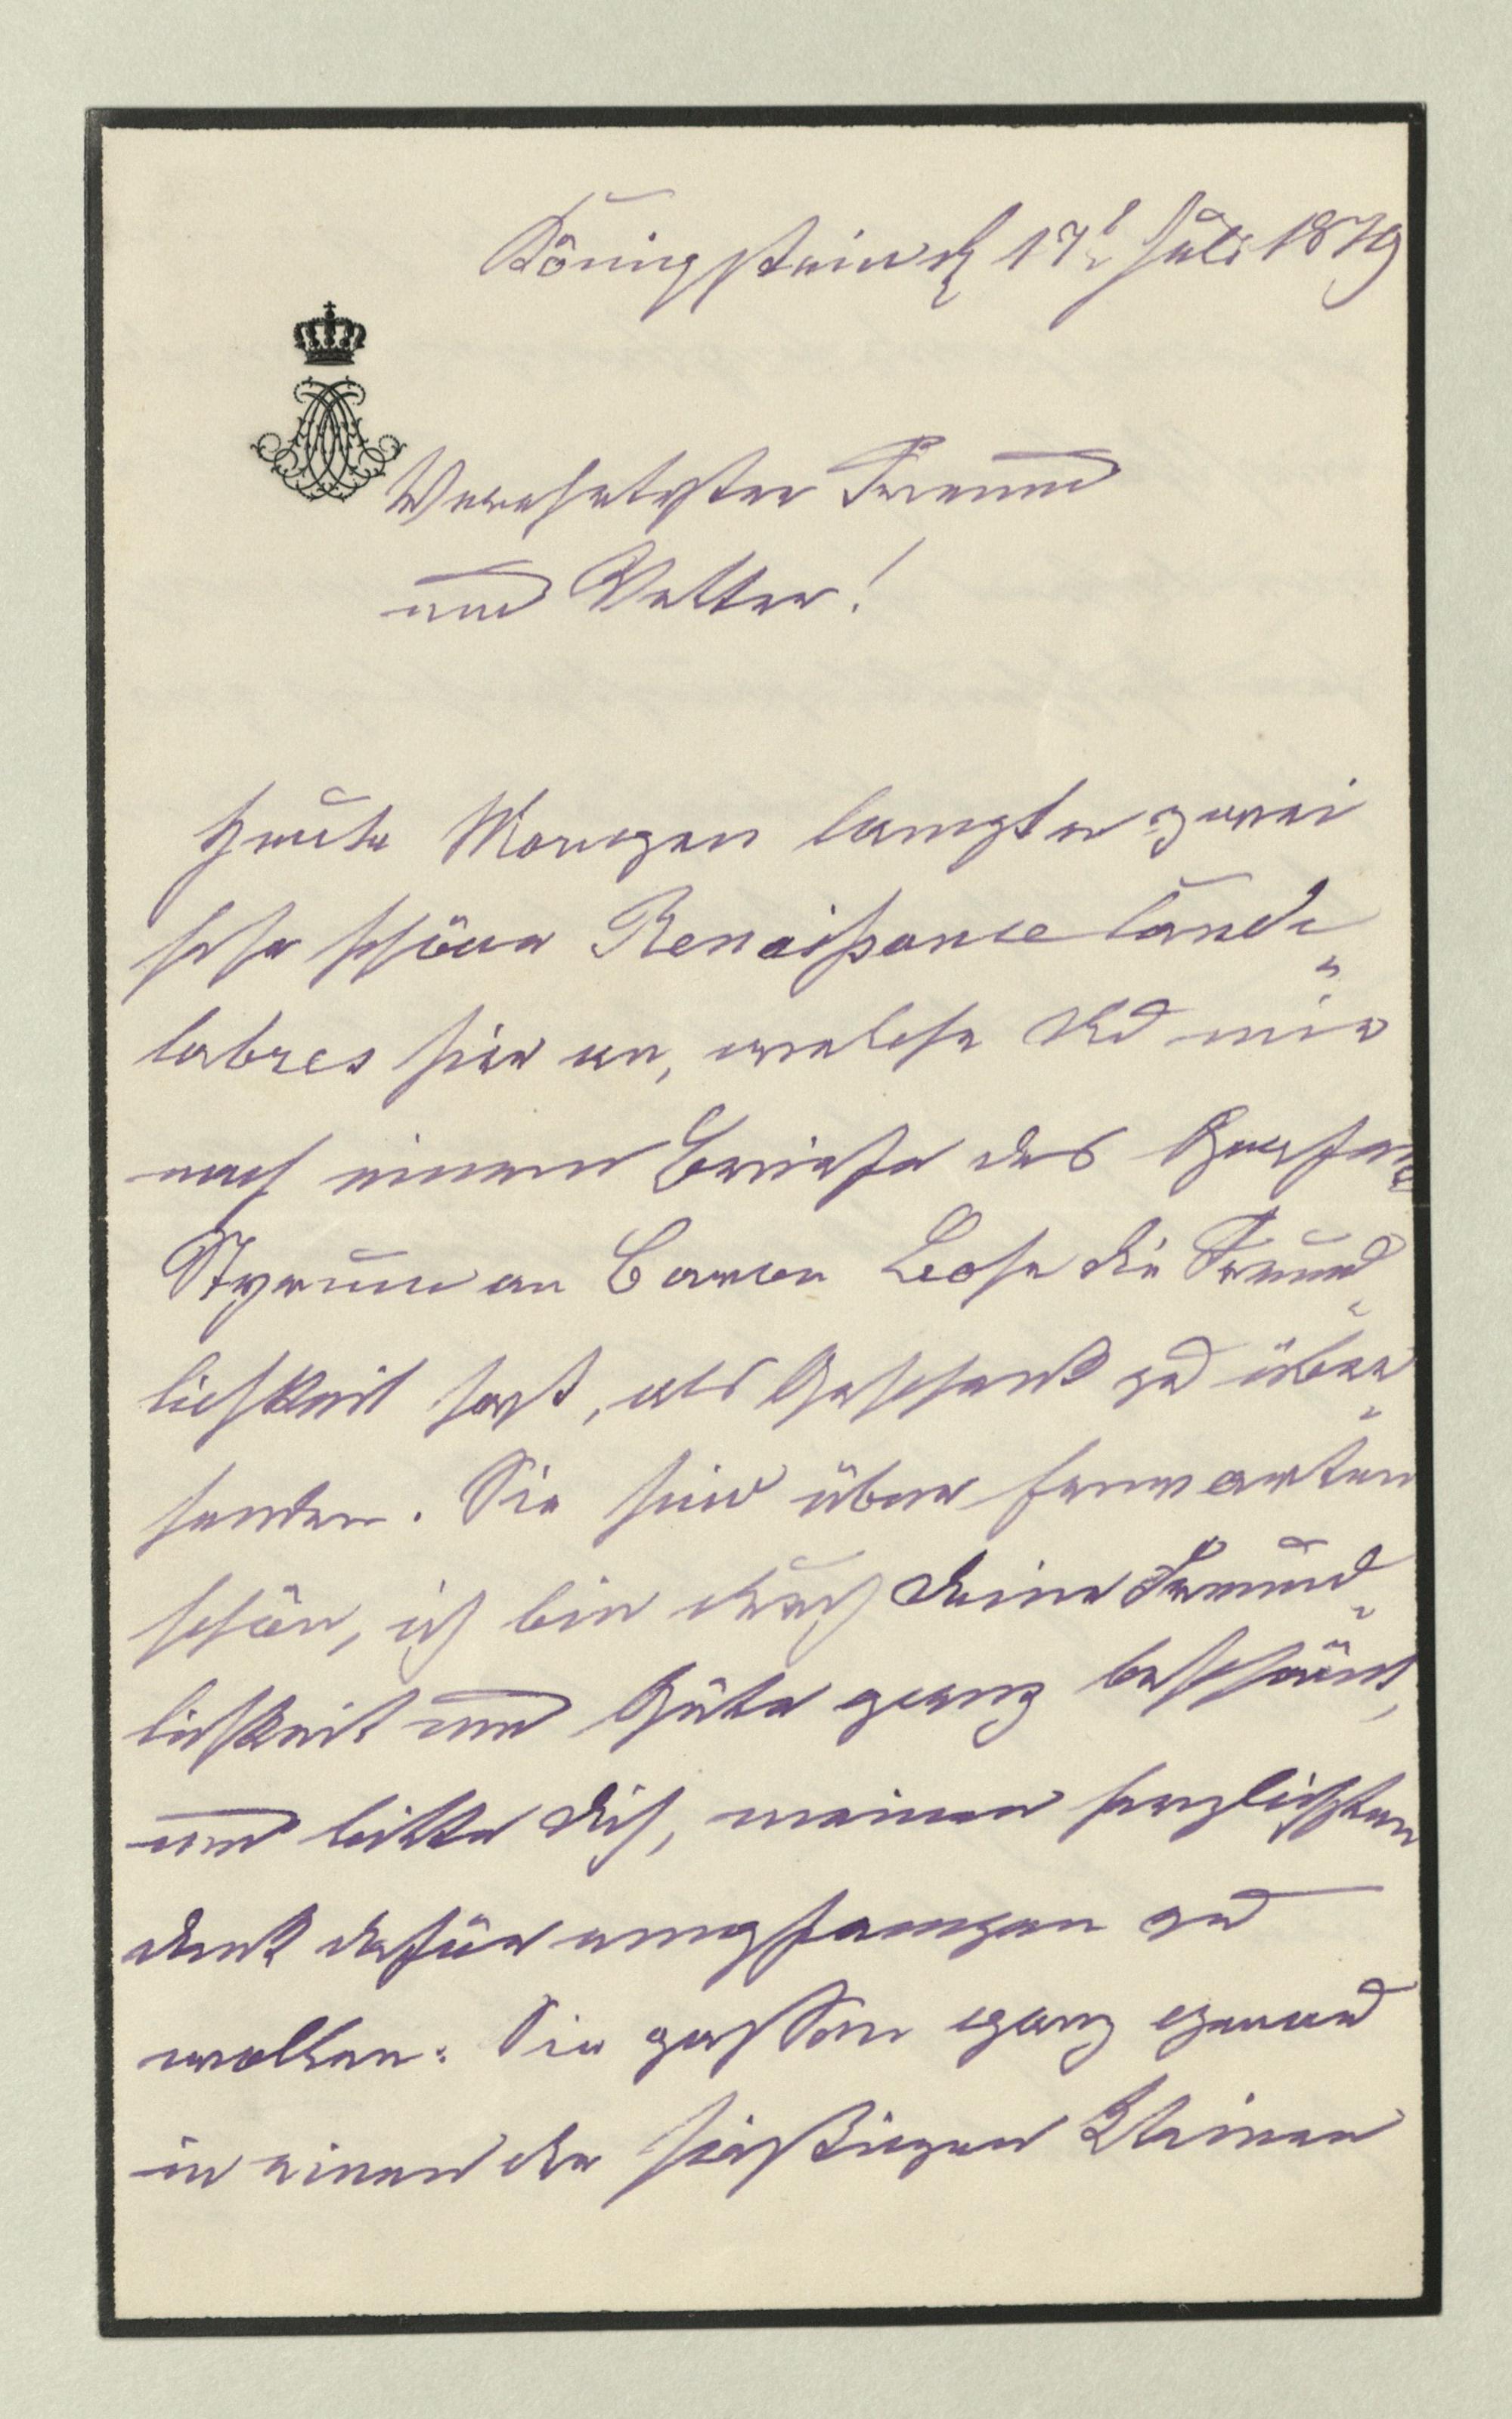 Königstein d 17t Juli 1879
Verehrtester Freund
und Vetter!
Heute Morgen langten zwei
sehr schöne Renaissance Cande„
labres hier an, welche Du mir
nach einem Briefe des Grafen
Styrum an Baron Leo die Freund„
lichkeit hast, als Geschenk zu über„
senden. Sie sind über Erwarten
schön, ich bin durch Deine Freund„
lichkeit und Güte ganz beschämt,
und bitte Dich, meinen herzlichsten
Dank dafür empfangen zu
wollen. Sie passen ganz gerade
in einen der hiesigen kleinen